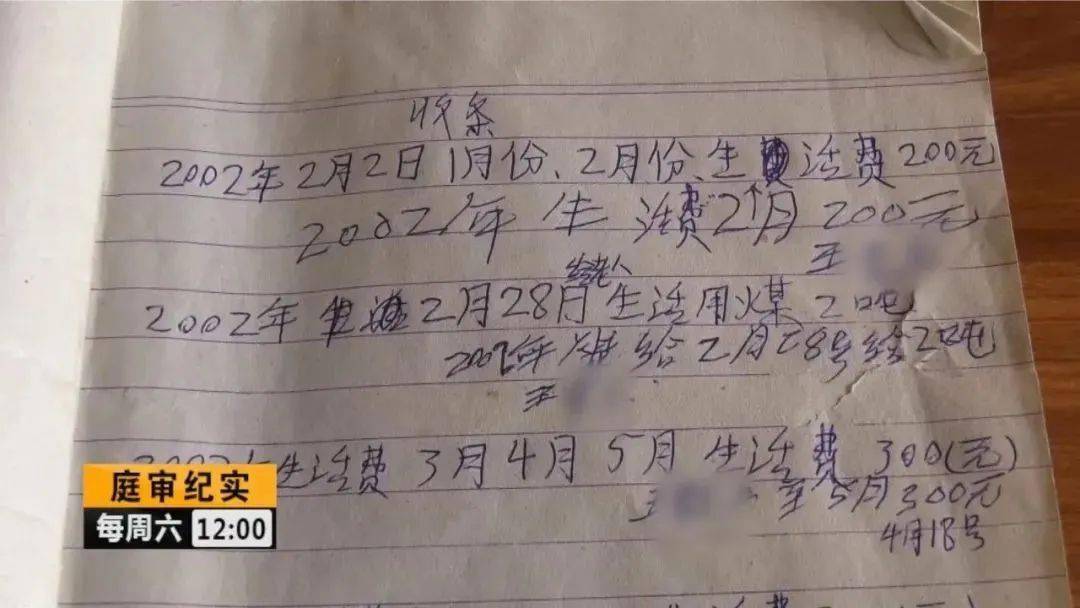 收条
2002年2月2日1月份、2月份、生活费200元
2002年生活费2个月200元
王
给老人
2002年2月28日生活用煤2吨
2002年煤给2月28号给2吨
王
生活费3月4月5月生活费300(元)
王 至5月300元
4月18号
生活费
庭审纪实
每周六 12:00